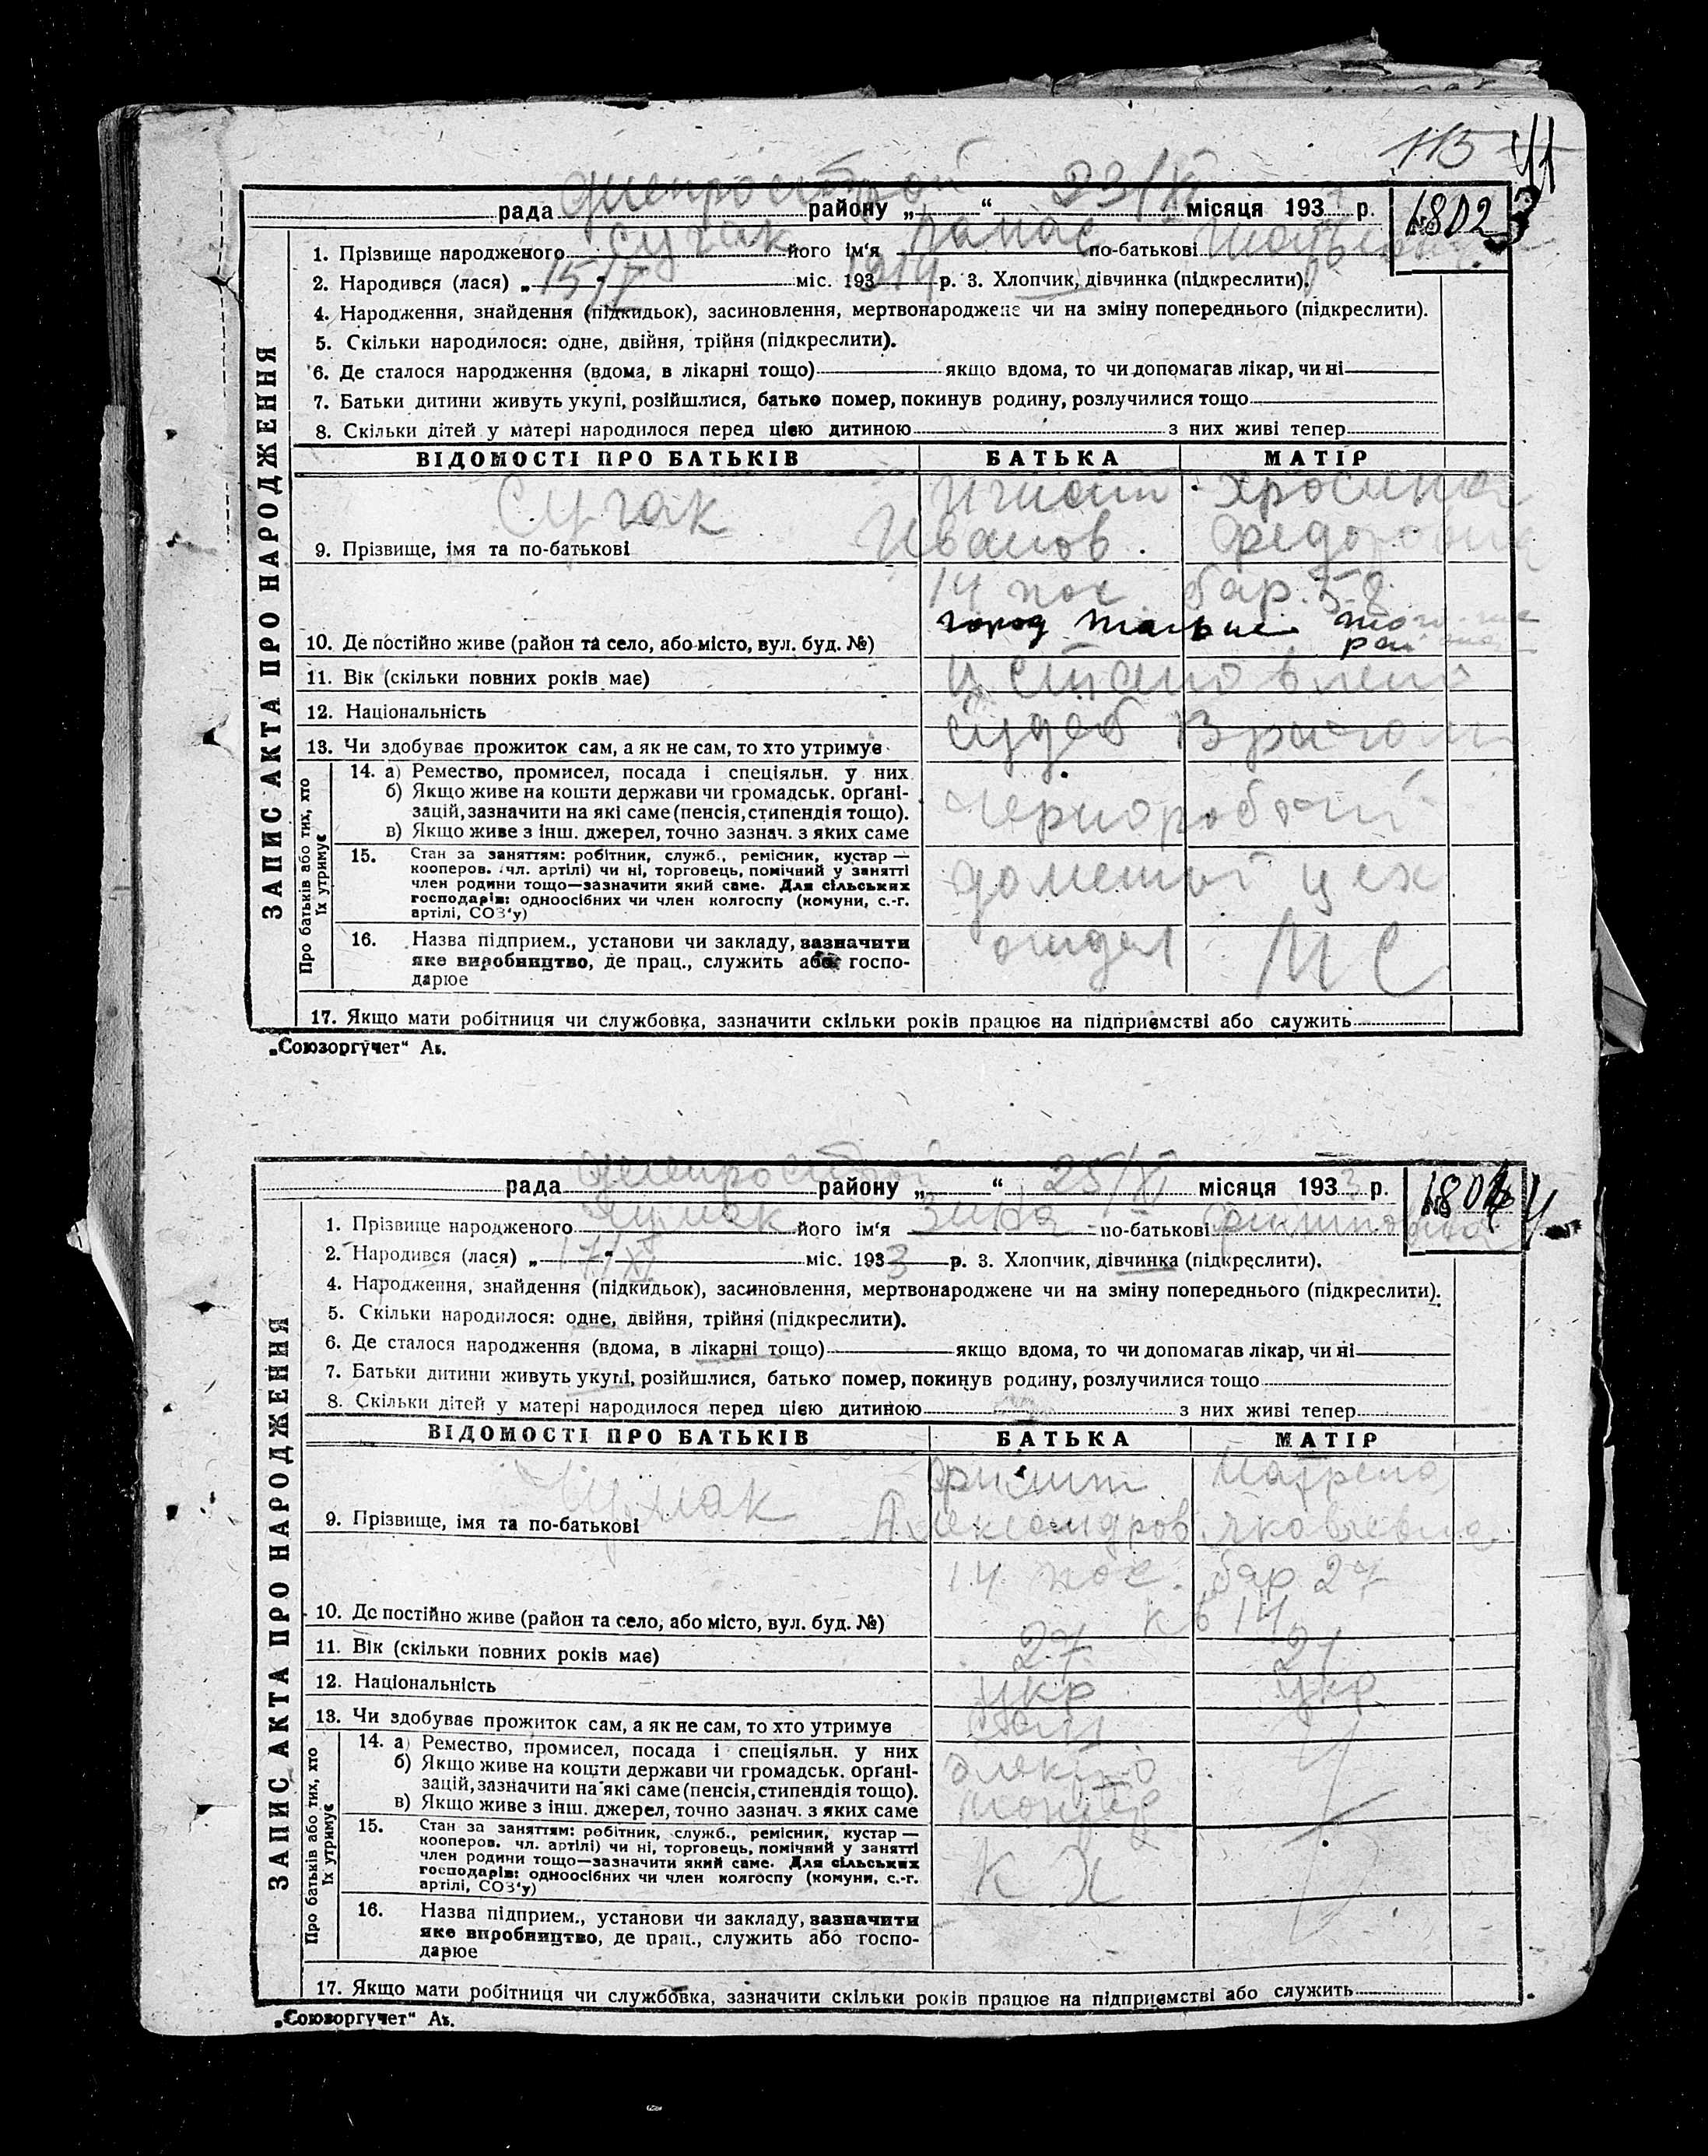 115
рада Днепрострой району „ “ 23/XI місяця 193 р.
1802
1. Прізвище народженого Сучак його ім‘я Панас по-батькові
2. Народився (лася) „ 15/V міс. 193 1914 р. 3. Хлопчик, дівчинка (підкреслити).
4. Народження, знайдення (підкидьок), засиновлення, мертвонароджене чи на зміну попереднього (підкреслити).
5. Скільки народилося: одне, двійня, трійня (підкреслити).
6. Де сталося народження (вдома, в лікарні тощо) якщо вдома, то чи допомагав лікар, чи ні
7. Батьки дитини живуть укупі, розійшлися, батько помер, покинув родину, розлучилися тощо
8. Скільки дітей у матері народилося перед цією дитиною з них живі тепер
ВІДОМОСТІ ПРО БАТЬКІВ БАТЬКА МАТІР
Сучак
9. Прізвище, імя та по-батькові Иванов Федоровна
14 пос бар. 58
город
10. Де постійно живе (район та село, або місто, вул. буд. №)
11. Вік (скільки повних років має) установлено
12. Національність
судеб Врачом
13. Чи здобуває прожиток сам, а як не сам, то хто утримує
14. а) Ремество, промисел, посада і спеціяльн. у них
б) Якщо живе на кошти держави чи громадськ. орґані-
зацій, зазначити на які саме (пенсія, стипендія тощо).
в) Якщо живе з інш. джерел, точно зазнач. з яких саме
чернорабочий
15. Стан за заняттям: робітник, служб., ремісник, кустар —
кооперов. чл. артілі) чи ні, торговець, помічний у занятті
член родини тощо—зазначити який саме. Для сільських
господарів: одноосібних чи член колгоспу (комуни, с.-г.
артілі, СОЗ‘у)
доменый цех
16. Назва підприєм., установи чи закладу, зазначити
яке виробництво, де прац., служить або госпо-
дарює
17. Якщо мати робітниця чи службовка, зазначити скільки років працює на підприємстві або служить
Про батьків або тих, хто
їх утримує
ЗАПИС АКТА ПРО НАРОДЖЕННЯ
„Союзоргучет“
рада Днепрострой району „ “ 25/XI місяця 1933 р.
1. Прізвище народженого його ім‘я Зина по-батькові
2. Народився (лася) „ 17/XI міс. 1933 р. 3. Хлопчик, дівчинка (підкреслити).
4. Народження, знайдення (підкидьок), засиновлення, мертвонароджене чи на зміну попереднього (підкреслити).
5. Скільки народилося: одне, двійня, трійня (підкреслити).
6. Де сталося народження (вдома, в лікарні тощо) якщо вдома, то чи допомагав лікар, чи ні
7. Батьки дитини живуть укупі, розійшлися, батько помер, покинув родину, розлучилися тощо
8. Скільки дітей у матері народилося перед цією дитиною з них живі тепер
ВІДОМОСТІ ПРО БАТЬКІВ БАТЬКА МАТІР
Матрена
9. Прізвище, імя та по-батькові Александров Яковлевна
14 пос. бар 27
кв 14
10. Де постійно живе (район та село, або місто, вул. буд. №)
11. Вік (скільки повних років має) 27 21
12. Національність укр укр
13. Чи здобуває прожиток сам, а як не сам, то хто утримує сам
14. а) Ремество, промисел, посада і спеціяльн. у них
б) Якщо живе на кошти держави чи громадськ. орґані-
зацій, зазначити на які саме (пенсія, стипендія тощо).
в) Якщо живе з інш. джерел, точно зазнач. з яких саме
электро
монтер
15. Стан за заняттям: робітник, служб., ремісник, кустар —
кооперов. чл. артілі) чи ні, торговець, помічний у занятті
член родини тощо—зазначити який саме. Для сільських
господарів: одноосібних чи член колгоспу (комуни, с.-г.
артілі, СОЗ‘у)
К Х
16. Назва підприєм., установи чи закладу, зазначити
яке виробництво, де прац., служить або госпо-
дарює
17. Якщо мати робітниця чи службовка, зазначити скільки років працює на підприємстві або служить
Про батьків або тих, хто
їх утримує
ЗАПИС АКТА ПРО НАРОДЖЕННЯ
„Союзоргучет“